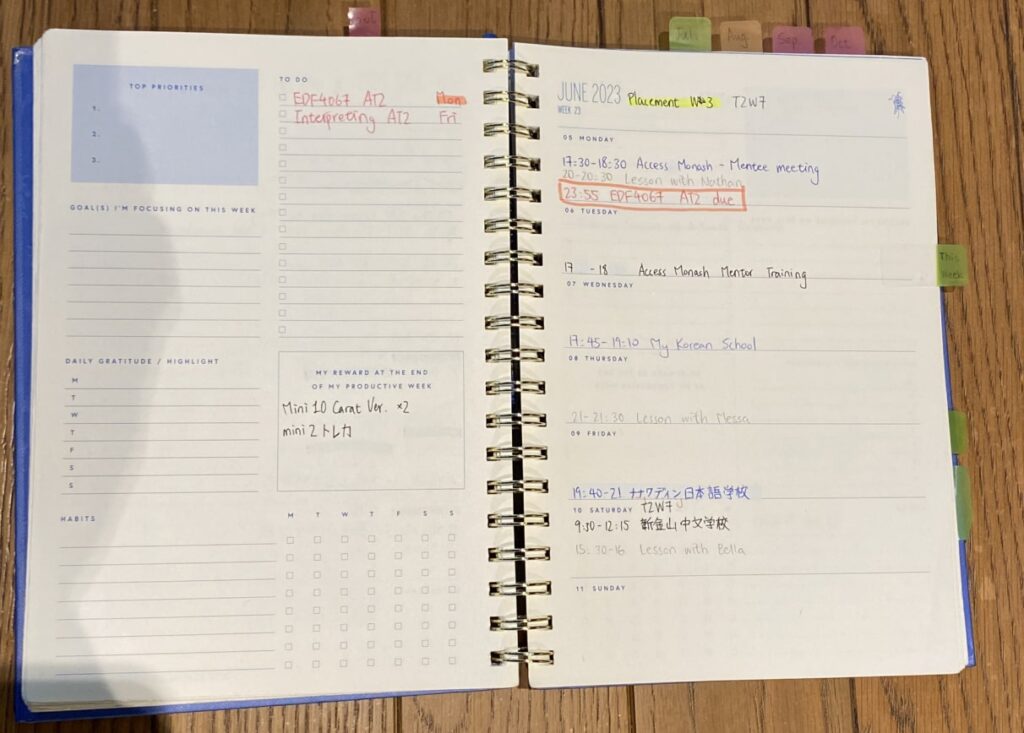 Jul
Aug
Sep
Oct
TOP PRIORITIES
1.
2.
3.
GOAL(S) I'M FOCUSING ON THIS WEEK
DAILY GRATITUDE / HIGHLIGHT
M
T
W
T
F
S
S
HABITS
TO DO
EDF4067 AT2 Mon
Interpreting AT2 Fri
MY REWARD AT THE END
OF MY PRODUCTIVE WEEK
Mini 10 Carat Ver. ×2
mini 2 トレカ
M T W T F S S
JUNE 2023 Placement W3 T2W7
WEEK 23
05 MONDAY
17:30-18:30 Access Monash - Mentee meeting
20-20:30 Lesson with Nathan
23:55 EDF4067 AT2 due
06 TUESDAY
17 - 18 Access Monash Mentor Training
07 WEDNESDAY
17:45-19:10 My Korean School
08 THURSDAY
21-21:30 Lesson with Messa
09 FRIDAY
19:40-21 ナナワディン日本語学校
10 SATURDAY T2W7
9:30-12:15 新金山中文学校
15:30-16 Lesson with Bella
11 SUNDAY
This
Week